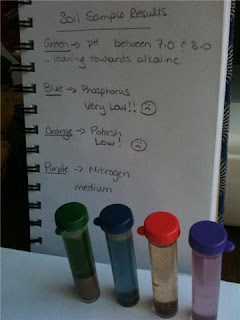 Soil Sample Results.
Green → PH between 7.0 & 8.0
... leaning towards alkaline
Blue → Phosphorus
Very Low!!
Orange → Potash
Low!
Purple → Nitrogen
medium